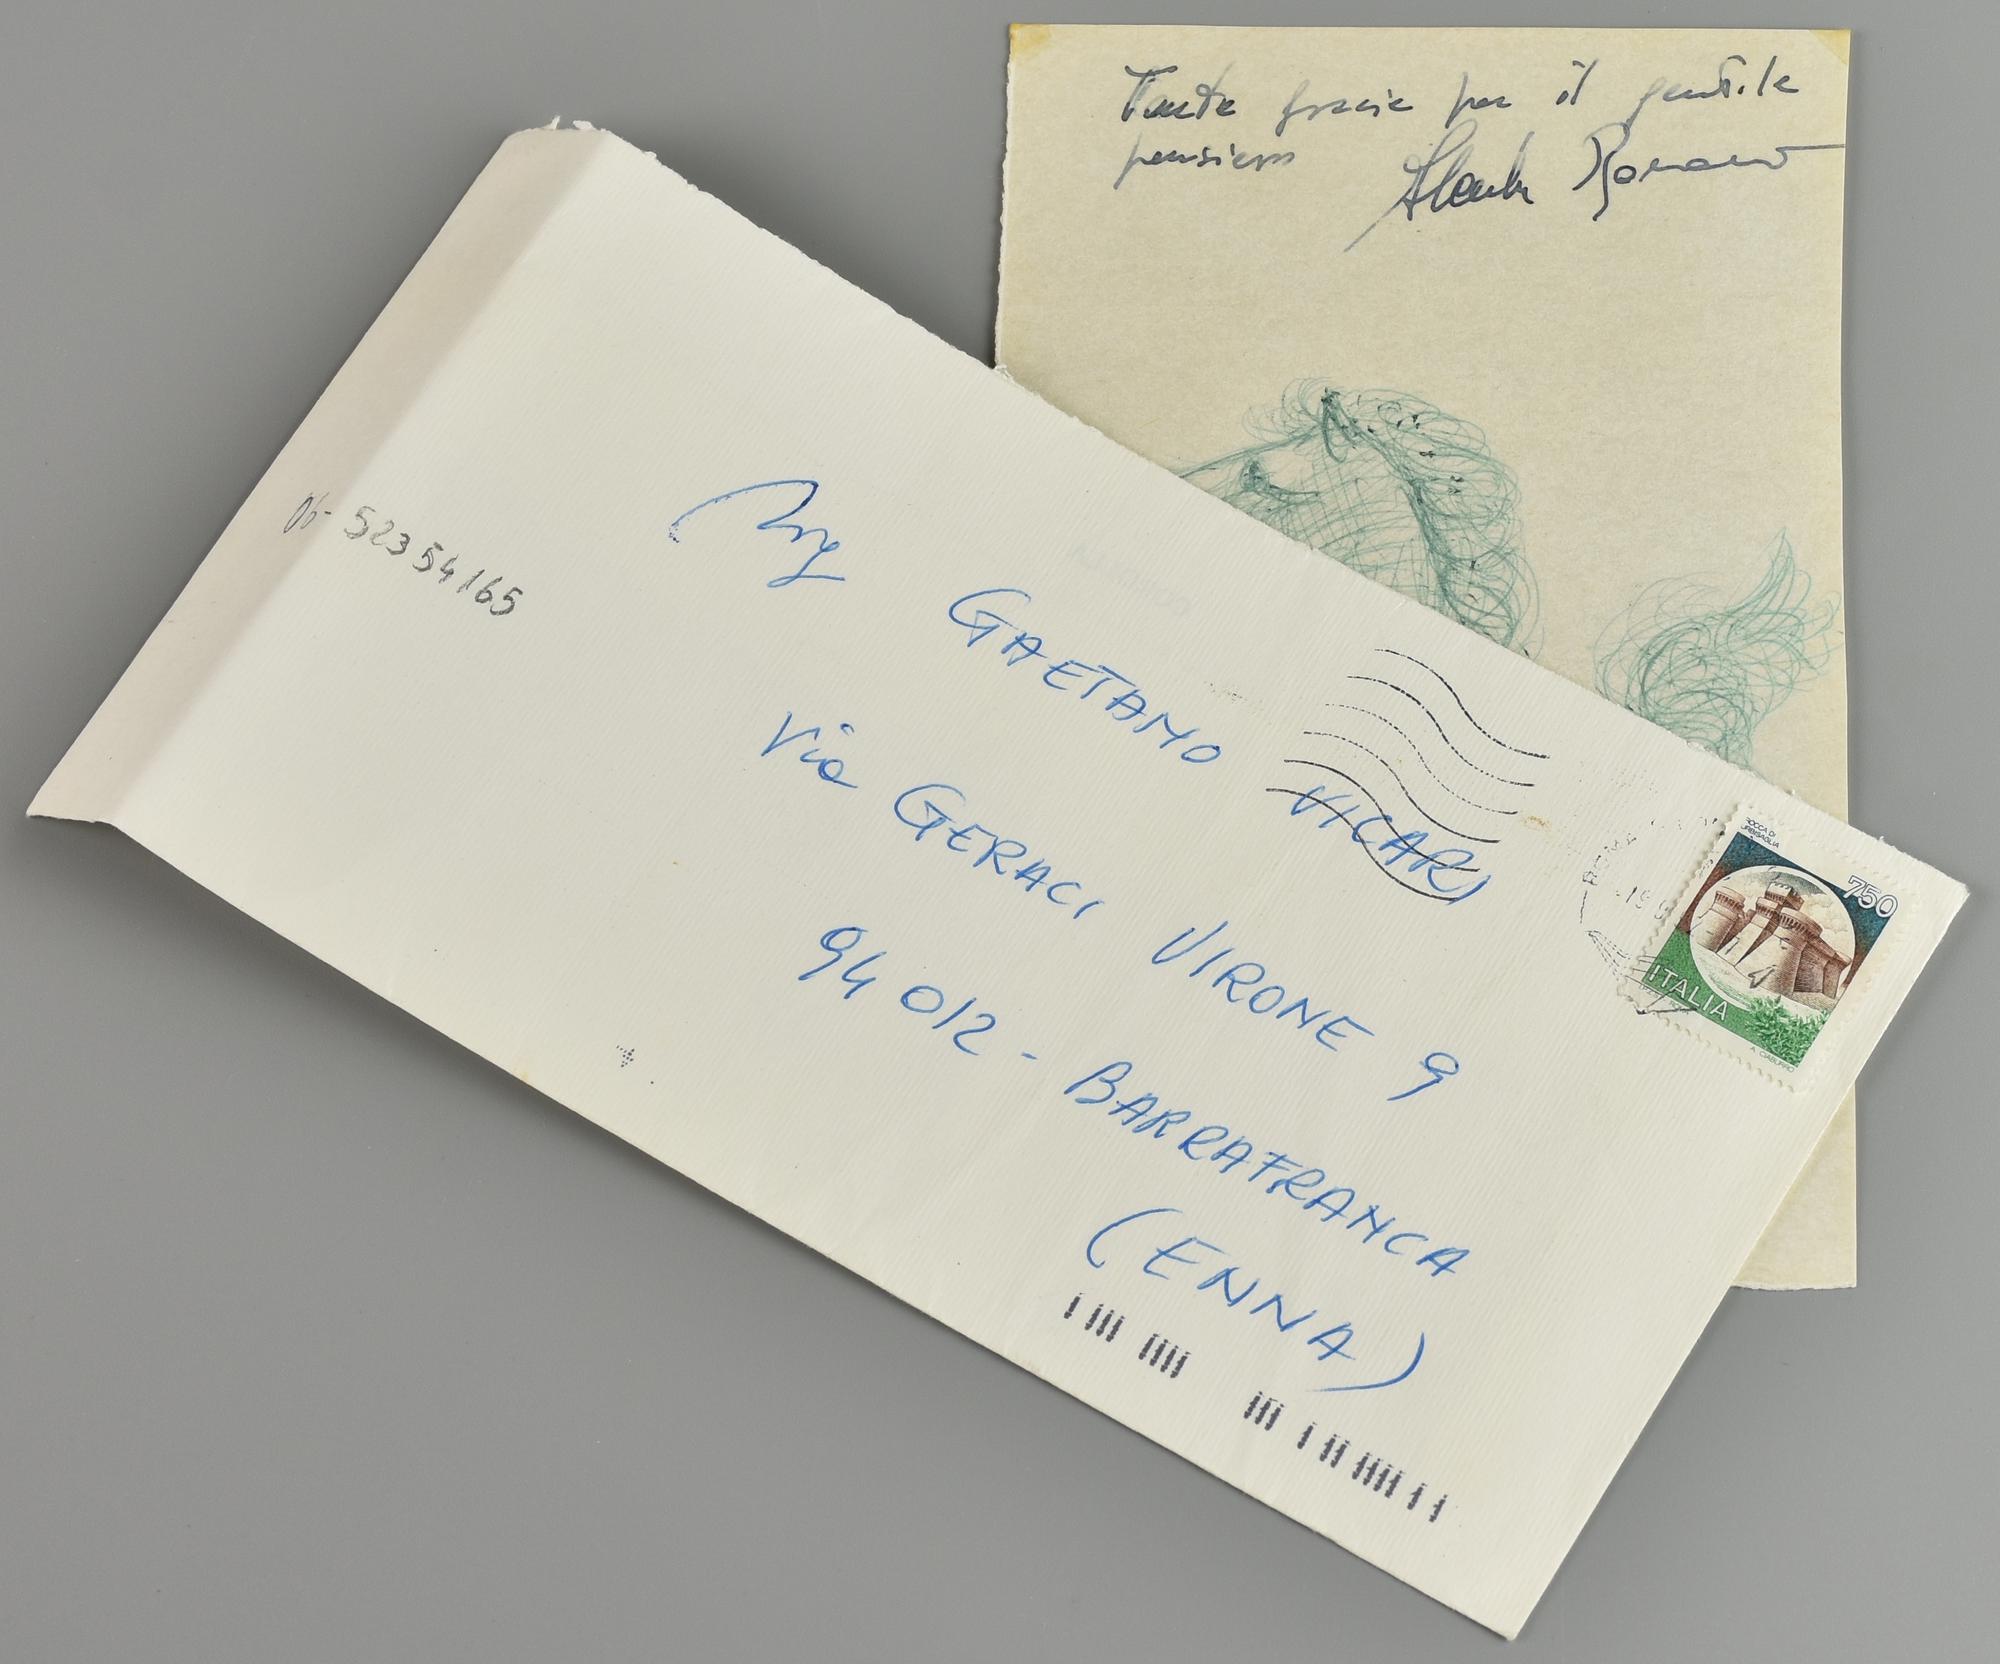 Tante grazie per il gentile
pensiero
Romano
06-52354165
GAETANO VICARI
Via GERACI VIRONE 9
94012-BARRAFRANCA
(ENNA)
ROMA
ROCCA DI
URBISAGLIA
750
ITALIA